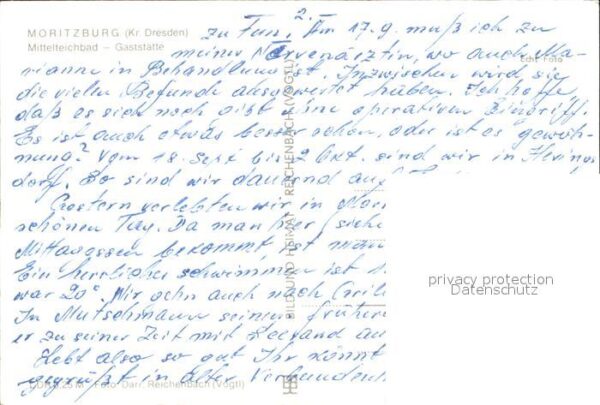 MORITZBURG (Kr. Dresden)
Mittelteichbad – Gaststätte
2.
zu tun. Am 17.9. muß ich zu
meiner Nervenärztin, wo auch Ma-
rianne in Behandlung ist. Inzwischen wird sie
die vielen Befunde ausgewertet haben. Ich hoffe
daß es sich noch gibt ohne operativen Eingriff.
Es ist auch etwas besser schon, oder ist es gewöh-
nung? Vom 18. Sept bis 2 Okt. sind wir in
dorf. So sind wir dauernd auf
Gestern verlebten wir in
schönen Tag. Da man hier
Mittagessen bekommt, ist man
Ein herrliches schwimmen ist
war 20° Wir gehn auch nach
In Mutschmann seinem früheren
er zu seiner Zeit mit
Lebt also so gut Ihr könnt
gegrüßt in alter Verbunden
Echt Foto
BILD UND HEIMAT REICHENBACH (VOGTL)
Foto Darr, Reichenbach (Vogtl)
privacy protection
Datenschutz